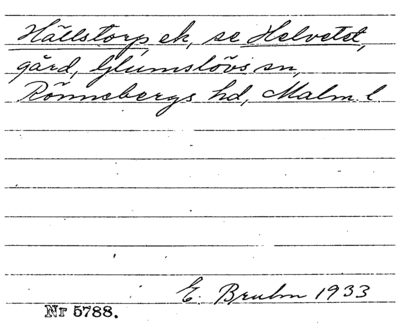 Hällstorp ek, se Helvetet,
gård, Glumslövs sn,
Rönnebergs hd, Malm. l.
E. Bruhn 1933
Nr 5788.